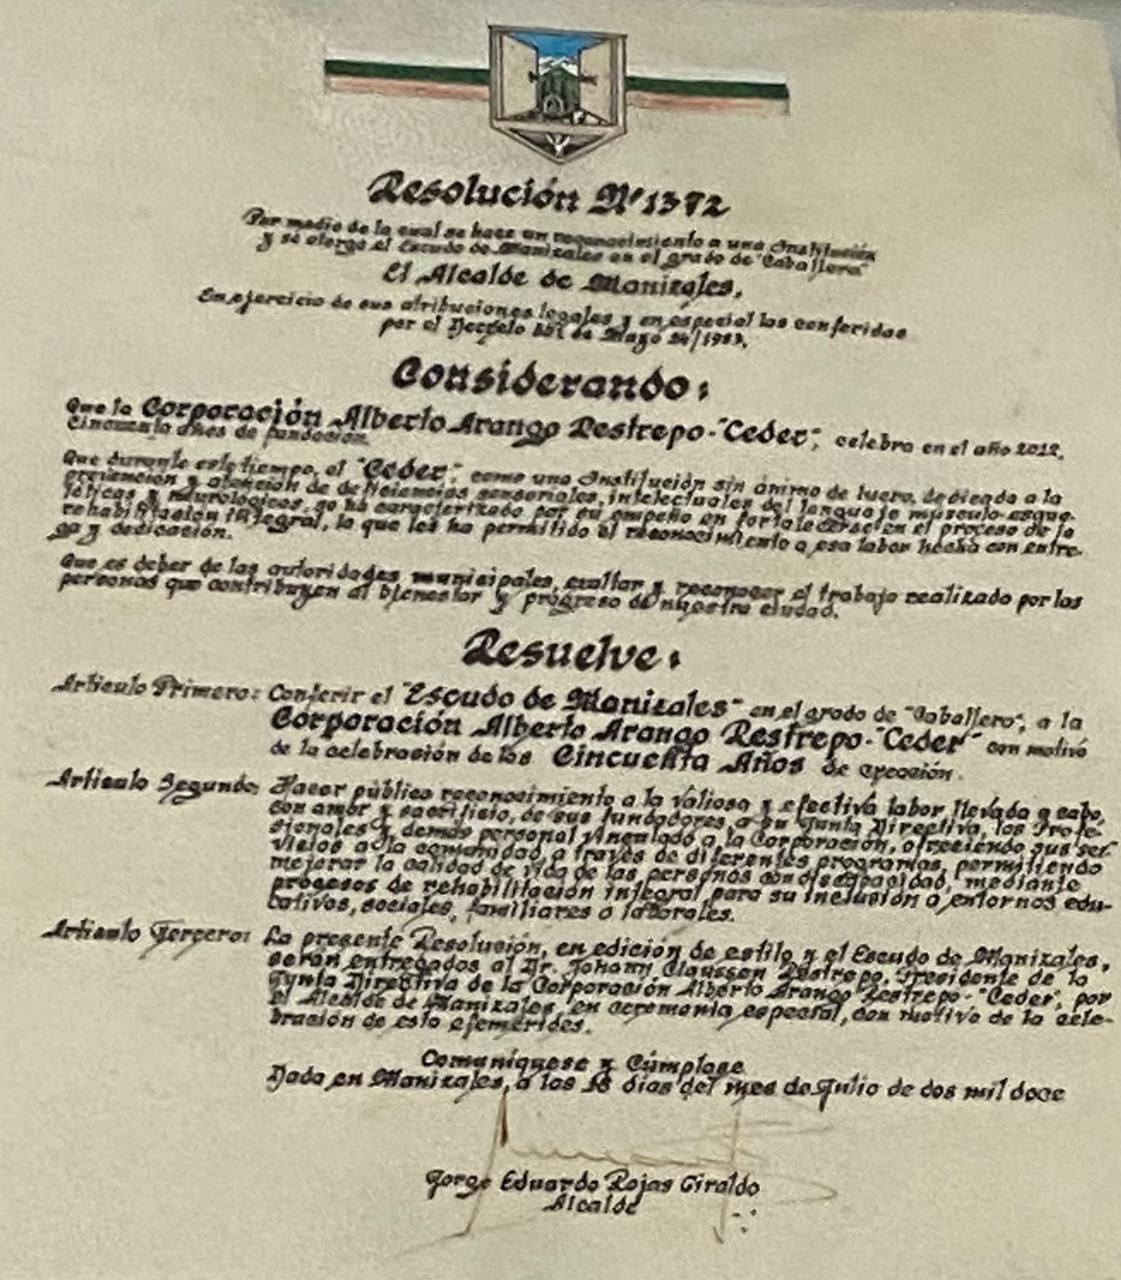 Resolución Nº 1372
Por medio de la cual se hace un reconocimiento a una Institución
y se otorga el Escudo de Manizales en el grado de "Caballero"
El Alcalde de Manizales,
En ejercicio de sus atribuciones legales y en especial las conferidas
por el Decreto de Mayo 24/1983,
Considerando:
Que la Corporación Alberto Arango Restrepo-"Ceder", celebra en el año 2012,
Cincuenta años de fundación.
Que durante este tiempo, el "Ceder", como una Institución sin ánimo de lucro, dedicada a la
prevención y atención de deficiencias sensoriales, intelectuales del lenguaje músculo-esque-
léticas y neurológicas, se ha caracterizado por su empeño en fortalecerse en el proceso de la
rehabilitación integral, lo que les ha permitido el reconocimiento a esa labor hecha con entre-
ga y dedicación.
Que es deber de las autoridades municipales, exaltar y reconocer el trabajo realizado por las
personas que contribuyen al bienestar y progreso de nuestra ciudad.
Resuelve:
Artículo Primero: Conferir el "Escudo de Manizales" en el grado de "Caballero", a la
Corporación Alberto Arango Restrepo-"Ceder" con motivo
de la celebración de los Cincuenta Años de creación.
Artículo Segundo: Hacer público reconocimiento a la valiosa y efectiva labor llevada a cabo,
con amor y sacrificio, de sus fundadores, a su Junta Directiva, los Profe-
sionales y demás personal vinculado a la Corporación, ofreciendo sus ser-
vicios a la comunidad a través de diferentes programas, permitiendo
mejorar la calidad de vida de las personas con discapacidad, mediante
procesos de rehabilitación integral para su inclusión a entornos edu-
cativos, sociales, familiares o laborales.
Artículo Tercero: La presente Resolución, en edición de estilo y el Escudo de Manizales,
serán entregados al Dr. Johann Claussen Restrepo, Presidente de la
Junta Directiva de la Corporación Alberto Arango Restrepo-"Ceder", por
el Alcalde de Manizales, en ceremonia especial, con motivo de la cele-
bración de esta efemérides.
Comuníquese y Cúmplase
Dada en Manizales, a los 18 días del mes de Julio de dos mil doce
Jorge Eduardo Rojas Giraldo
Alcalde